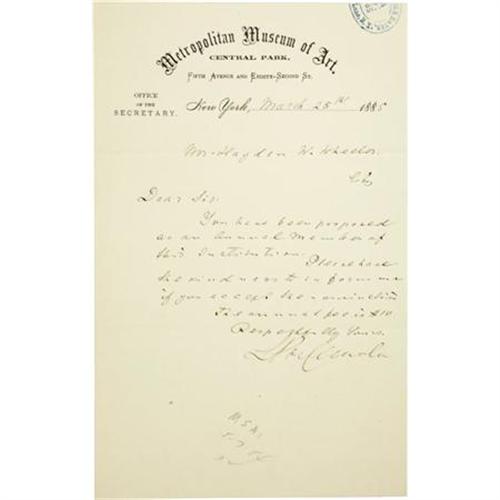 Metropolitan Museum of Art.
CENTRAL PARK,
FIFTH AVENUE AND EIGHTY-SECOND ST.
OFFICE
OF THE
SECRETARY.
New York, March 25th 1885
Mr Hayden W. Wheeler
City
Dear Sir:
You have been proposed
as an Annual Member of
this Institution.
Please have
the kindness to inform me
if you accept the nomination
The annual fee is $10
Respectfully Yours
LP di Cesnola